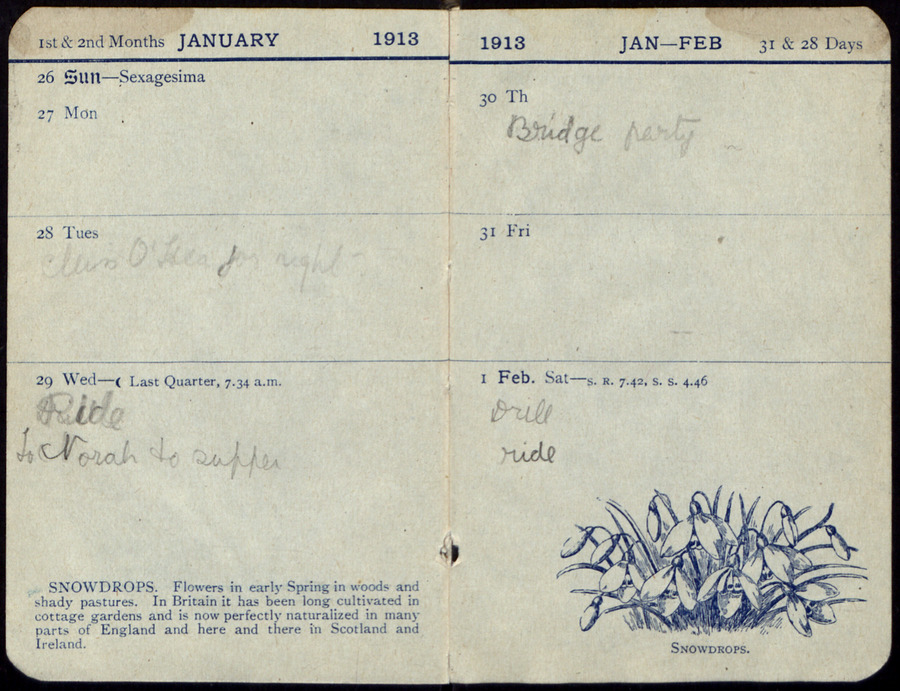 1st & 2nd Months JANUARY 1913
26 Sun—Sexagesima
27 Mon
28 Tues
Miss O'Shea for night
29 Wed—☾ Last Quarter, 7.34 a.m.
Ride
to Norah to supper
SNOWDROPS. Flowers in early Spring in woods and
shady pastures. In Britain it has been long cultivated in
cottage gardens and is now perfectly naturalized in many
parts of England and here and there in Scotland and
Ireland.
1913 JAN—FEB 31 & 28 Days
30 Th
Bridge party
31 Fri
1 Feb. Sat—S. R. 7.42, S. S. 4.46
Drill
ride
SNOWDROPS.